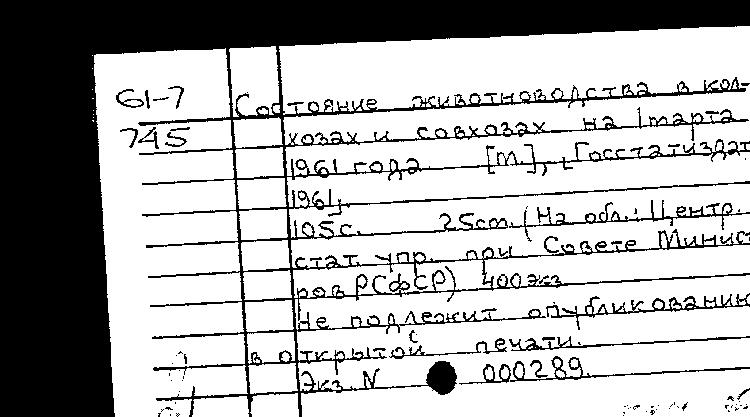 61-7 Состояние животноводства в кол-
745 хозах и совхозах на 1 марта
1961 года [М.], [Госстатиздат
1961].
105с. 25см. (На обл.: Центр.
стат. упр. при Совете Минист
ров РСФСР) 400экз
Не подлежит опубликованию
в открытой печати.
Экз. N 000289.